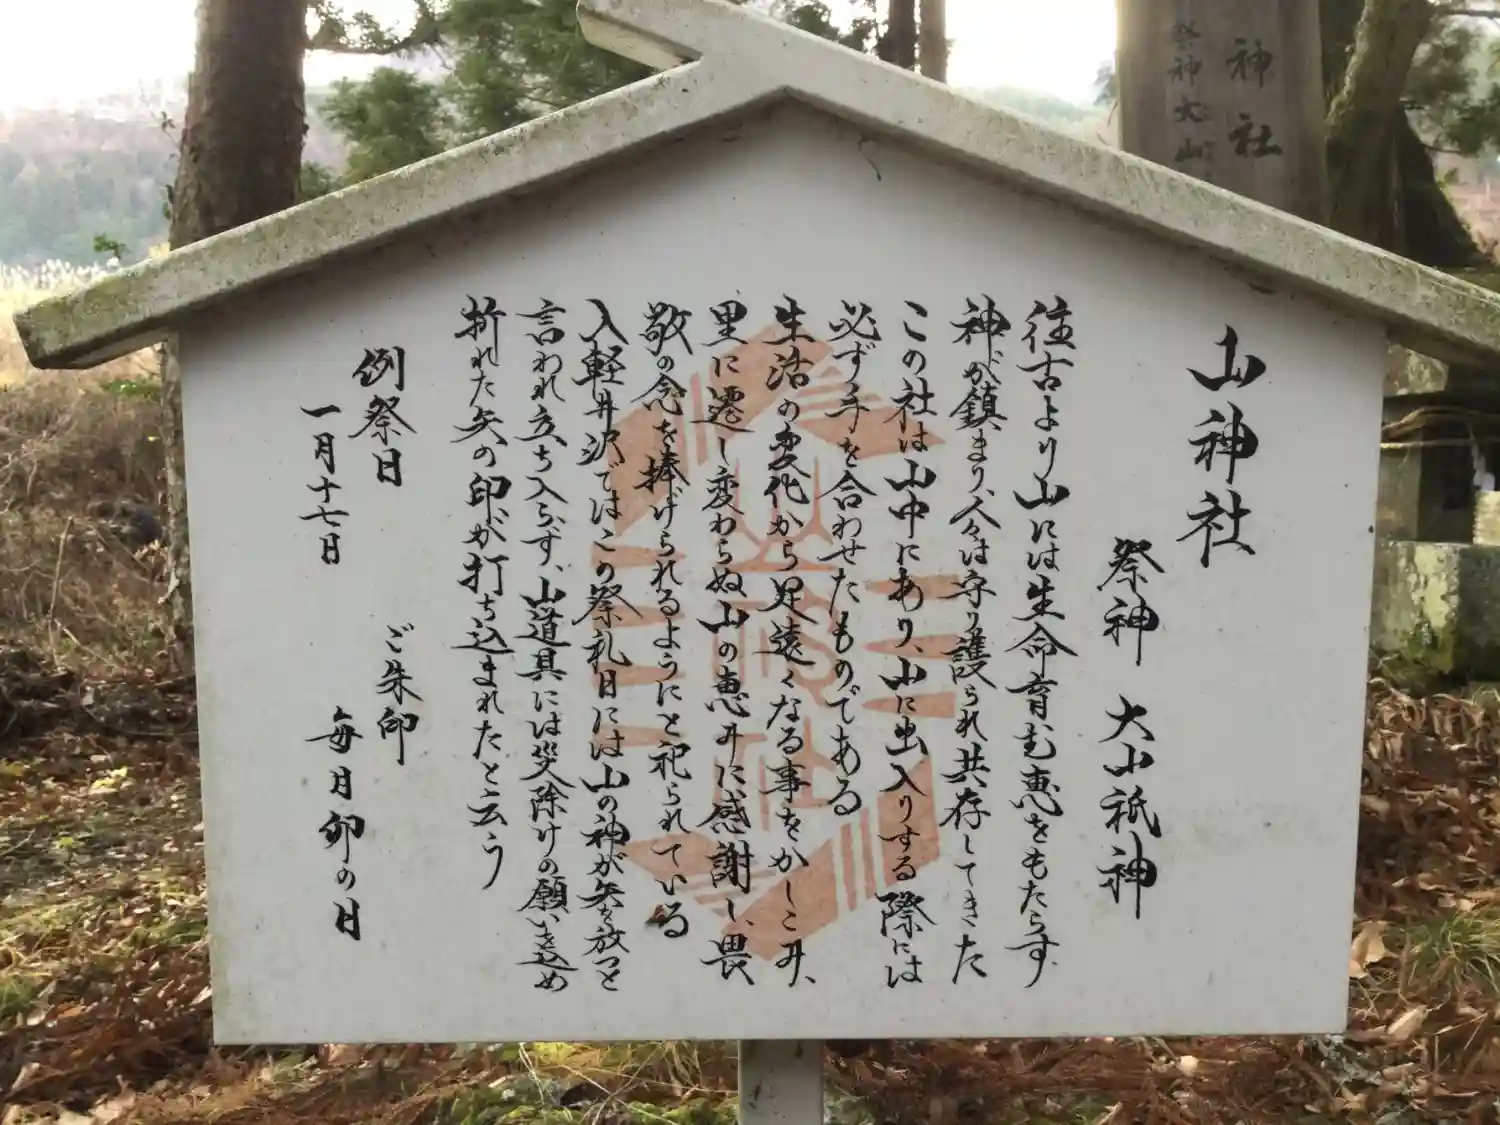 山神社
祭神 大山祇神
往古より山には生命育む恵をもたらす、
神が鎮まり、人々は守り護られ共存してきた
この社は山中にあり、山に出入りする際には
必ず手を合わせたものである
生活の変化から足遠くなる事をかしこみ、
里に遷し変わらぬ山の恵みに感謝し、畏
敬の念を捧げられるようにと祀られている
入軽井沢ではこの祭礼日には山の神が矢を放つと
言われ立ち入らず、山道具には災除けの願いを込め
折れた矢の印が打ち込まれたと云う
例祭日
一月十七日
ご朱印
毎月卯の日
神社
祭神大山